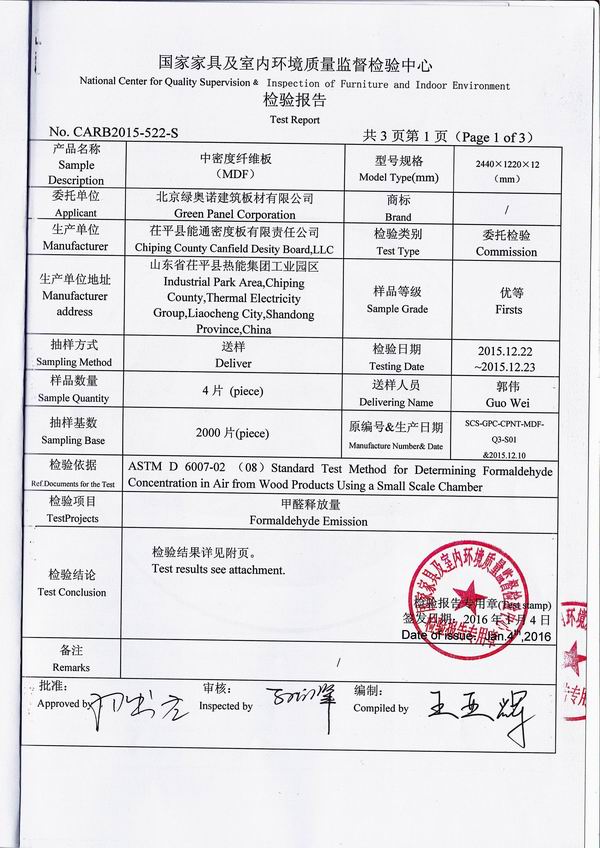 国家家具及室内环境质量监督检验中心
National Center for Quality Supervision & Inspection of Furniture and Indoor Environment
检验报告
Test Report
No. CARB2015-522-S
共 3 页第 1 页（Page 1 of 3）
产品名称
Sample
Description
中密度纤维板
（MDF）
型号规格
Model Type(mm)
2440×1220×12
（mm）
委托单位
Applicant
北京绿奥诺建筑板材有限公司
Green Panel Corporation
商标
Brand
/
生产单位
Manufacturer
茌平县能通密度板有限责任公司
Chiping County Canfield Desity Board,LLC
检验类别
Test Type
委托检验
Commission
生产单位地址
Manufacturer
address
山东省茌平县热能集团工业园区
Industrial Park Area,Chiping
County,Thermal Electricity
Group,Liaocheng City,Shandong
Province,China
样品等级
Sample Grade
优等
Firsts
抽样方式
Sampling Method
送样
Deliver
检验日期
Testing Date
2015.12.22
~2015.12.23
样品数量
Sample Quantity
4 片 (piece)
送样人员
Delivering Name
郭伟
Guo Wei
抽样基数
Sampling Base
2000 片(piece)
原编号&生产日期
Manufacture Number& Date
SCS-GPC-CPNT-MDF-
Q3-S01
&2015.12.10
检验依据
Ref.Documents for the Test
ASTM D 6007-02 （08）Standard Test Method for Determining Formaldehyde
Concentration in Air from Wood Products Using a Small Scale Chamber
检验项目
TestProjects
甲醛释放量
Formaldehyde Emission
检验结论
Test Conclusion
检验结果详见附页。
Test results see attachment.
国家家具及室内环境质量监督检验中心
检验报告专用章
检验报告专用章(Test stamp)
签发日期：2016 年 1 月 4 日
Date of issue: Jan.4th,2016
备注
Remarks
/
批准：
Approved by
审核：
Inspected by
编制：
Compiled by
王亚辉